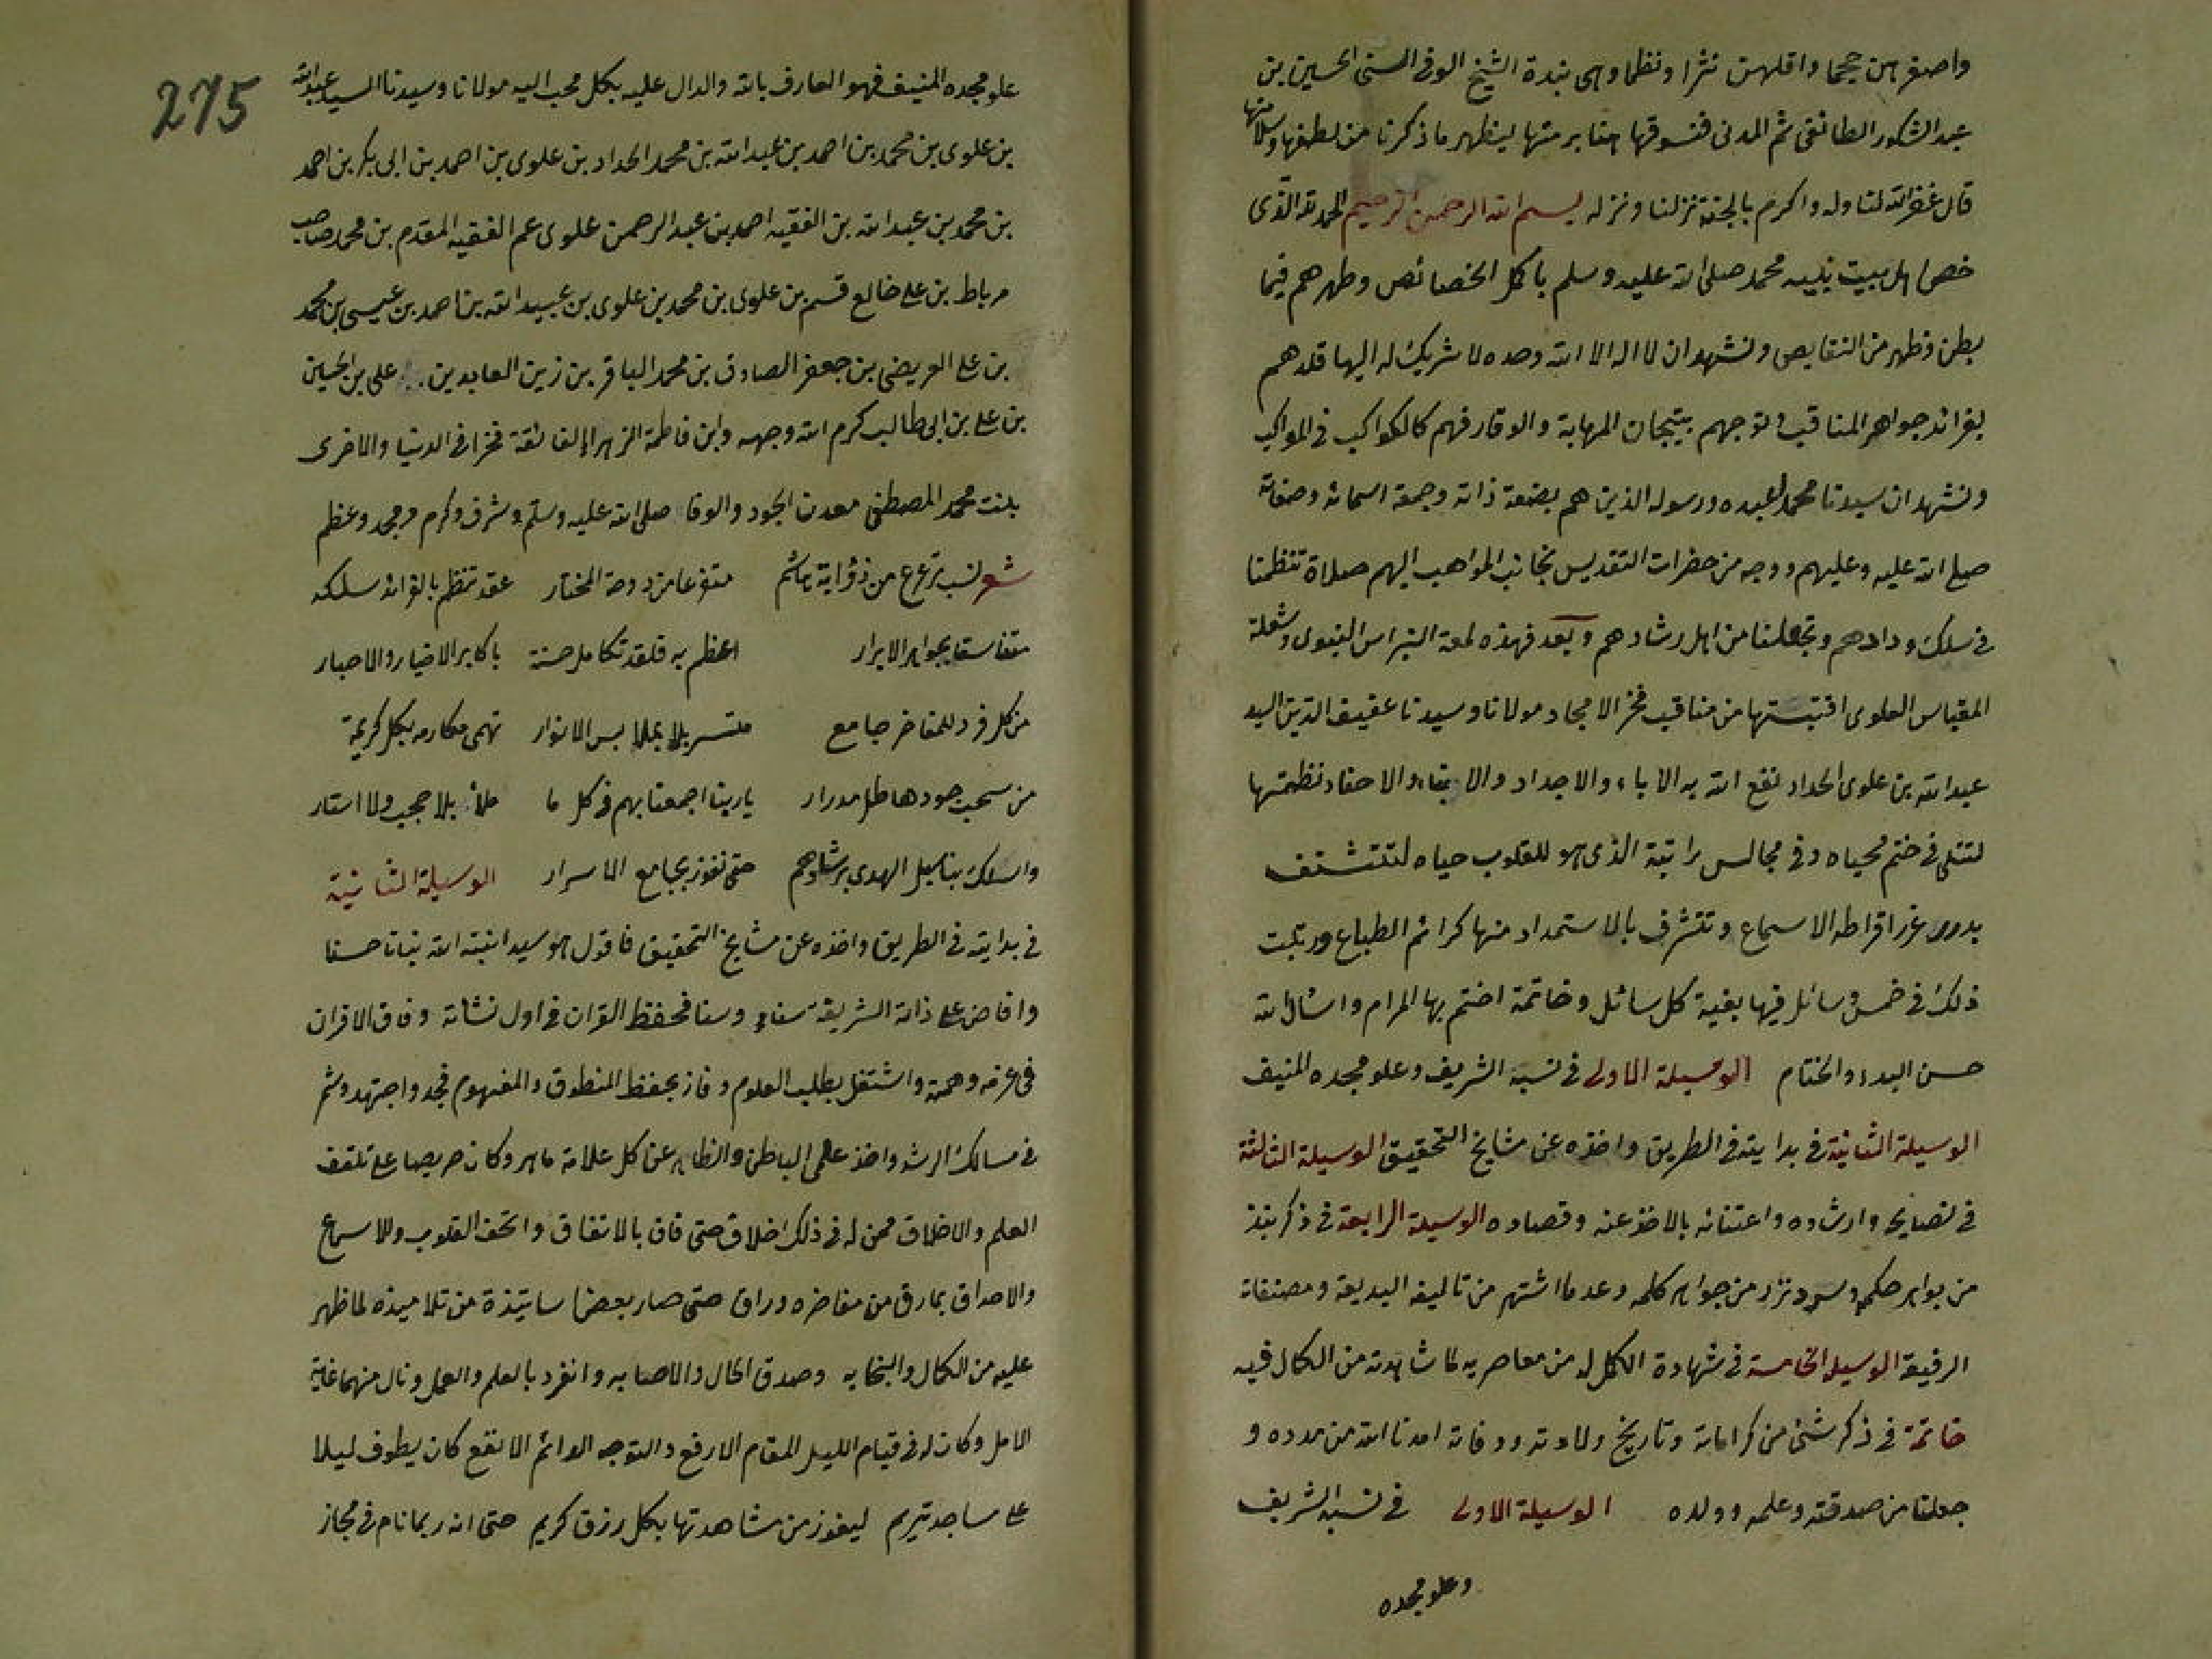 واصغرهن حجما واقلهن نثرا ونظما وهى نبذة الشيخ الوفى السنى الحسين بن
عبد الشكور الطائفى ثم المدنى فنسوقها بتمامها ليظهر ما ذكرنا من لطفها وسلامتها
قال غفر الله لنا وله واكرم بالجنة نزلنا ونزله بسم الله الرحمن الرحيم الحمد لله الذى
خص اهل بيت نبيه محمد صلى الله عليه وسلم باكمل الخصائص وطهرهم فيما
بطن وظهر من النقايص ونشهد ان لا اله الا الله وحده لا شريك له الها قلدهم
بفرائد جواهر المناقب وتوجهم بتيجان المهابة والوقار فهم كالكواكب فى المواكب
ونشهد ان سيدنا محمدا عبده ورسوله الذين هم بضعة ذاته وجمعة اسمائه وصفاته
صلى الله عليه وعليهم ووجه من حضرات التقديس نجائب المواهب اليهم صلاة تنظمنا
فى سلك ودادهم وتجعلنا من اهل رشادهم وبعد فهذه لمعة النبراس النبوى وشعلة
المقباس العلوى اقتبستها من مناقب فخر الامجاد مولانا وسيدنا عفيف الدين السيد
عبد الله بن علوى الحداد نفع الله به الاباء والاجداد والابناء والاحفاد نظمتها
لتتلى فى ختم محياه وفى مجالس راتبة الذى هو للقلوب حياه لتتشنف
بدرر غرر اقراطه الاسماع وتتشرف بالاستمداد منها كرائم الطباع ورتبت
ذلك فى خمس وسائل فيها بغية كل سائل وخاتمة اختم بها المرام واسأل الله
حسن البدء والختام الوسيلة الاولى فى نسبه الشريف وعلو مجده المنيف
الوسيلة الثانية فى بدايته فى الطريق واخذه عن مشايخ التحقيق الوسيلة الثالثة
فى نصايحه وارشاده واعتنائه بالاخذ عنه وقصاده الوسيلة الرابعة فى ذكر نبذ
من بواهر حكمه وسرد نزر من جواهر كلمه وعد ما اشتهر من تاليفه البديعة ومصنفاته
الرفيعة الوسيلة الخامسة فى شهادة الكمل له من معاصريه لما شاهدته من الكمال فيه
خاتمة فى ذكر شئ من كراماته وتاريخ ولادته ووفاته امدنا الله من مدده و
جعلنا من صدقته وعلمه وولده الوسيلة الاولى فى نسبه الشريف
وعلو مجده
275
علو مجده المنيف فهو العارف بالله والدال عليه بكل محب اليه مولانا وسيدنا السيد عبد الله
بن علوى بن محمد بن احمد بن عبد الله بن محمد الحداد بن علوى بن احمد بن ابى بكر بن احمد
بن محمد بن عبد الله بن الفقيه احمد بن عبد الرحمن علوى عم الفقيه المقدم بن محمد صاحب
مرباط بن على خالع قسم بن علوى بن محمد بن علوى بن عبيد الله بن احمد بن عيسى بن محمد
بن على العريضى بن جعفر الصادق بن محمد الباقر بن زين العابدين على بن الحسين
بن على بن ابى طالب كرم الله وجهه وابن فاطمة الزهرا الفائقة فخرا فى الدنيا والاخرى
بلنت محمد المصطفى معدن الجود والوفا صلى الله عليه وسلم وشرف وكرم ومجد وعظم
شعر نسب ترعرع من ذؤابة هاشم متفرعا من دوحة المختار عقد تنظم بالفرائد سلكه
متناسقا بجواهر الابرار اعظم به فلقد تكامل حسنه باكابر الاخيار والاحبار
من كل فرد للمفاخر جامع متسربلا بملابس الانوار تهمى مكارمه بكل كريمة
من سحب جود هاطل مدرار يا ربنا اجمعنا بهم فى كل ما ملأ بلا حجب ولا استار
واسلك بنا سبل الهدى برشادهم حتى نفوز بجامع الاسرار الوسيلة الثانية
فى بدايته فى الطريق واخذه عن مشايخ التحقيق فاقول هو سيد انبته الله نباتا حسنا
وافاض على ذاته الشريفة سناء وسنا فحفظ القران فى اول نشاته وفاق الاقران
فى عزمه وهمته واشتغل بطلب العلوم وفاز بحفظ المنطوق والمفهوم فجد واجتهد وشمر
فى مسالك الرشد واخذ علمى الباطن والظاهر عن كل علامة ماهر وكان حريصا على تلقف
العلم والاخلاق ممن له فى ذلك اخلاق حتى فاق بالاتفاق واتحف القلوب والاسماع
والاحداق بما رق من مفاخره وراق حتى صار بعض اساتيذة من تلاميذه لما ظهر
عليه من الكمال والنجابه وصدق الحال والاصابه وانفرد بالعلم والعمل ونال منهما غاية
الامل وكان له فى قيام الليل المقام الارفع والتوجه الدائم الانفع كان يطوف ليلا
على مساجد تريم ليفوز من مشاهدتها بكل رزق كريم حتى انه ربما نام فى مجاز